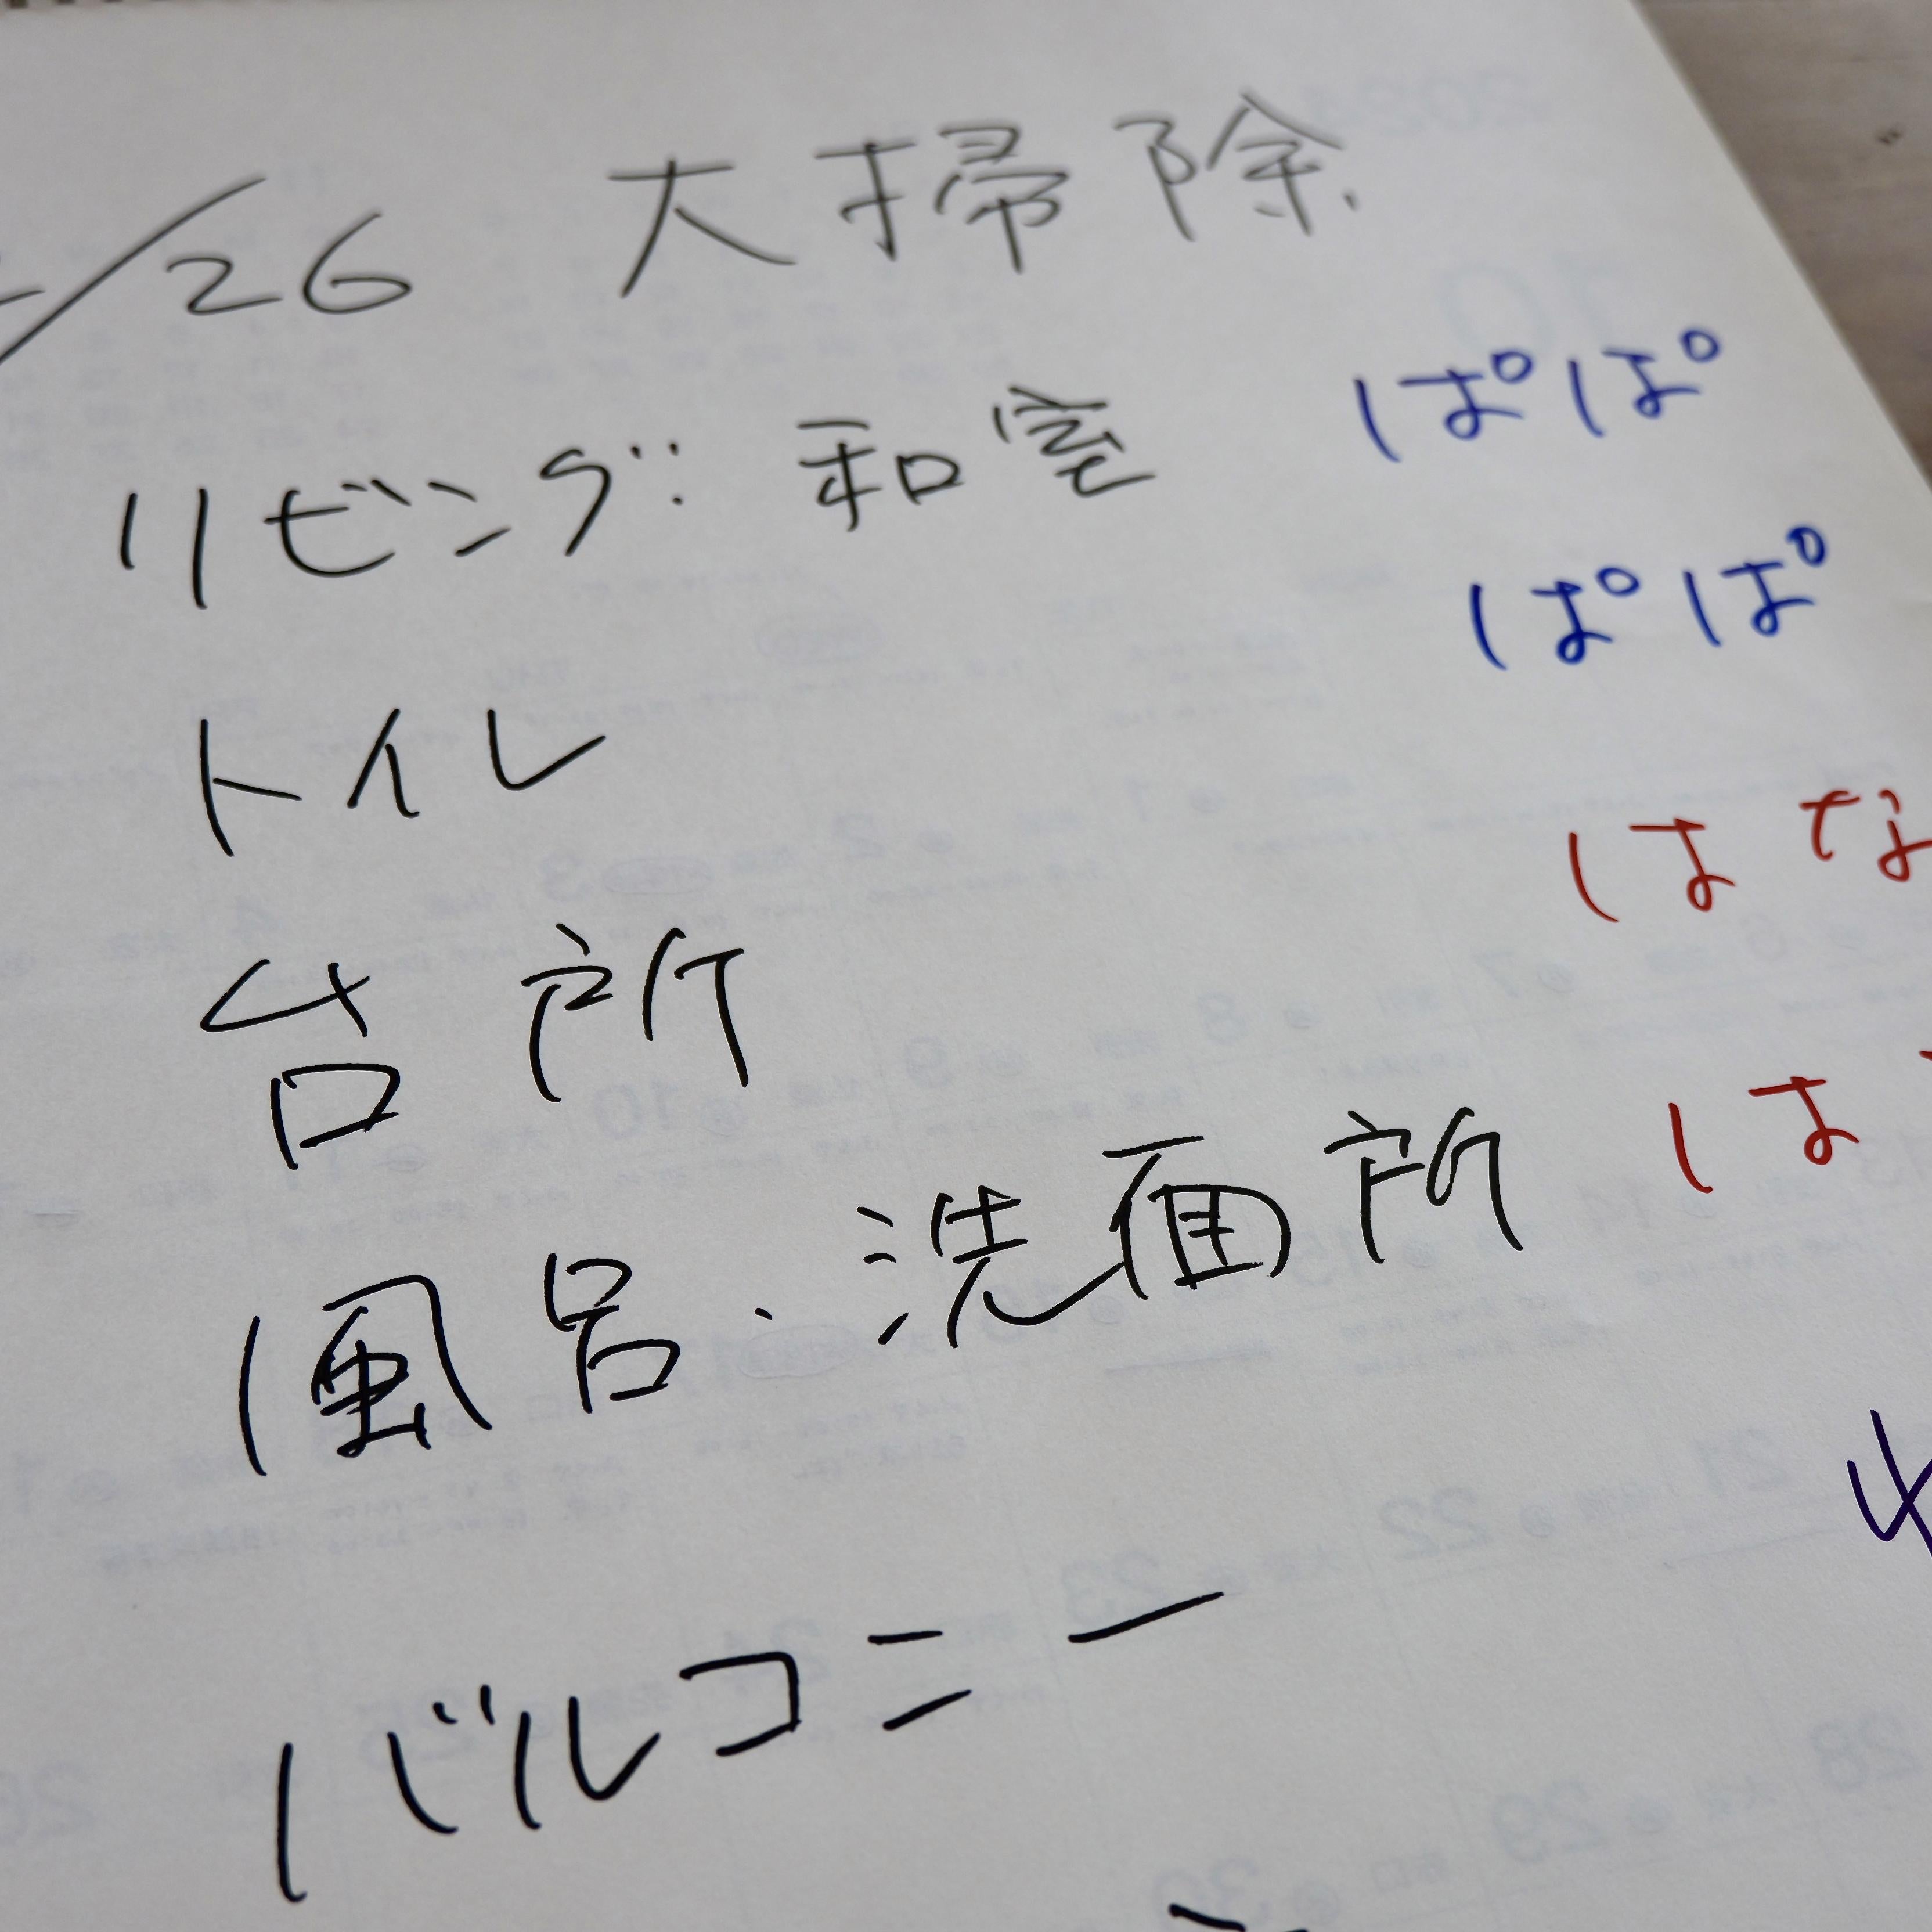 /26 大掃除
リビング・和室 ぱぱ
トイレ ぱぱ
台所 はな
風呂・洗面所 は
バルコニー